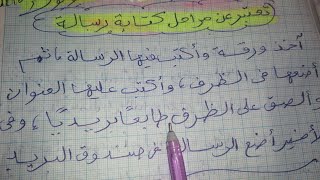 تعبير عن مراحل كتابة رسالة
آخذ ورقة وأكتب فيها الرسالة ثم
أضعها في الظرف، وأكتب عليها العنوان
وألصق على الظرف طابعًا بريديًا، وفي
الأخير أضع الرسالة في صندوق البريد